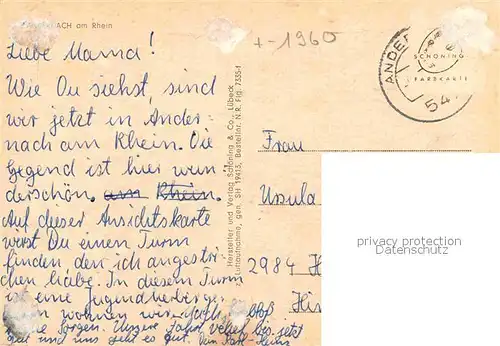 ACH am Rhein
Liebe Mama!
Wie Du siehst, sind
wir jetzt in Ander-
nach am Rhein. Die
Gegend ist hier wun-
derschön. am Rhein.
Auf dieser Ansichtskarte
wirst Du einen Turm
finden den ich angestri-
chen habe. In diesem Turm
ist eine Jugendherberge.
wohnen wir.
Sorgen. Unsere Fahrt verlief bis jetzt
gut und uns geht es gut.
Hersteller und Verlag Schöning & Co., Lübeck
Luftaufnahme, gen. SH 19413, Bestellnr. N.R. Flg. 7335-1
+-1960
ANDER
54
SCHÖNING
FARBKARTE
Frau
Ursula
2984 H
privacy protection
Datenschutz